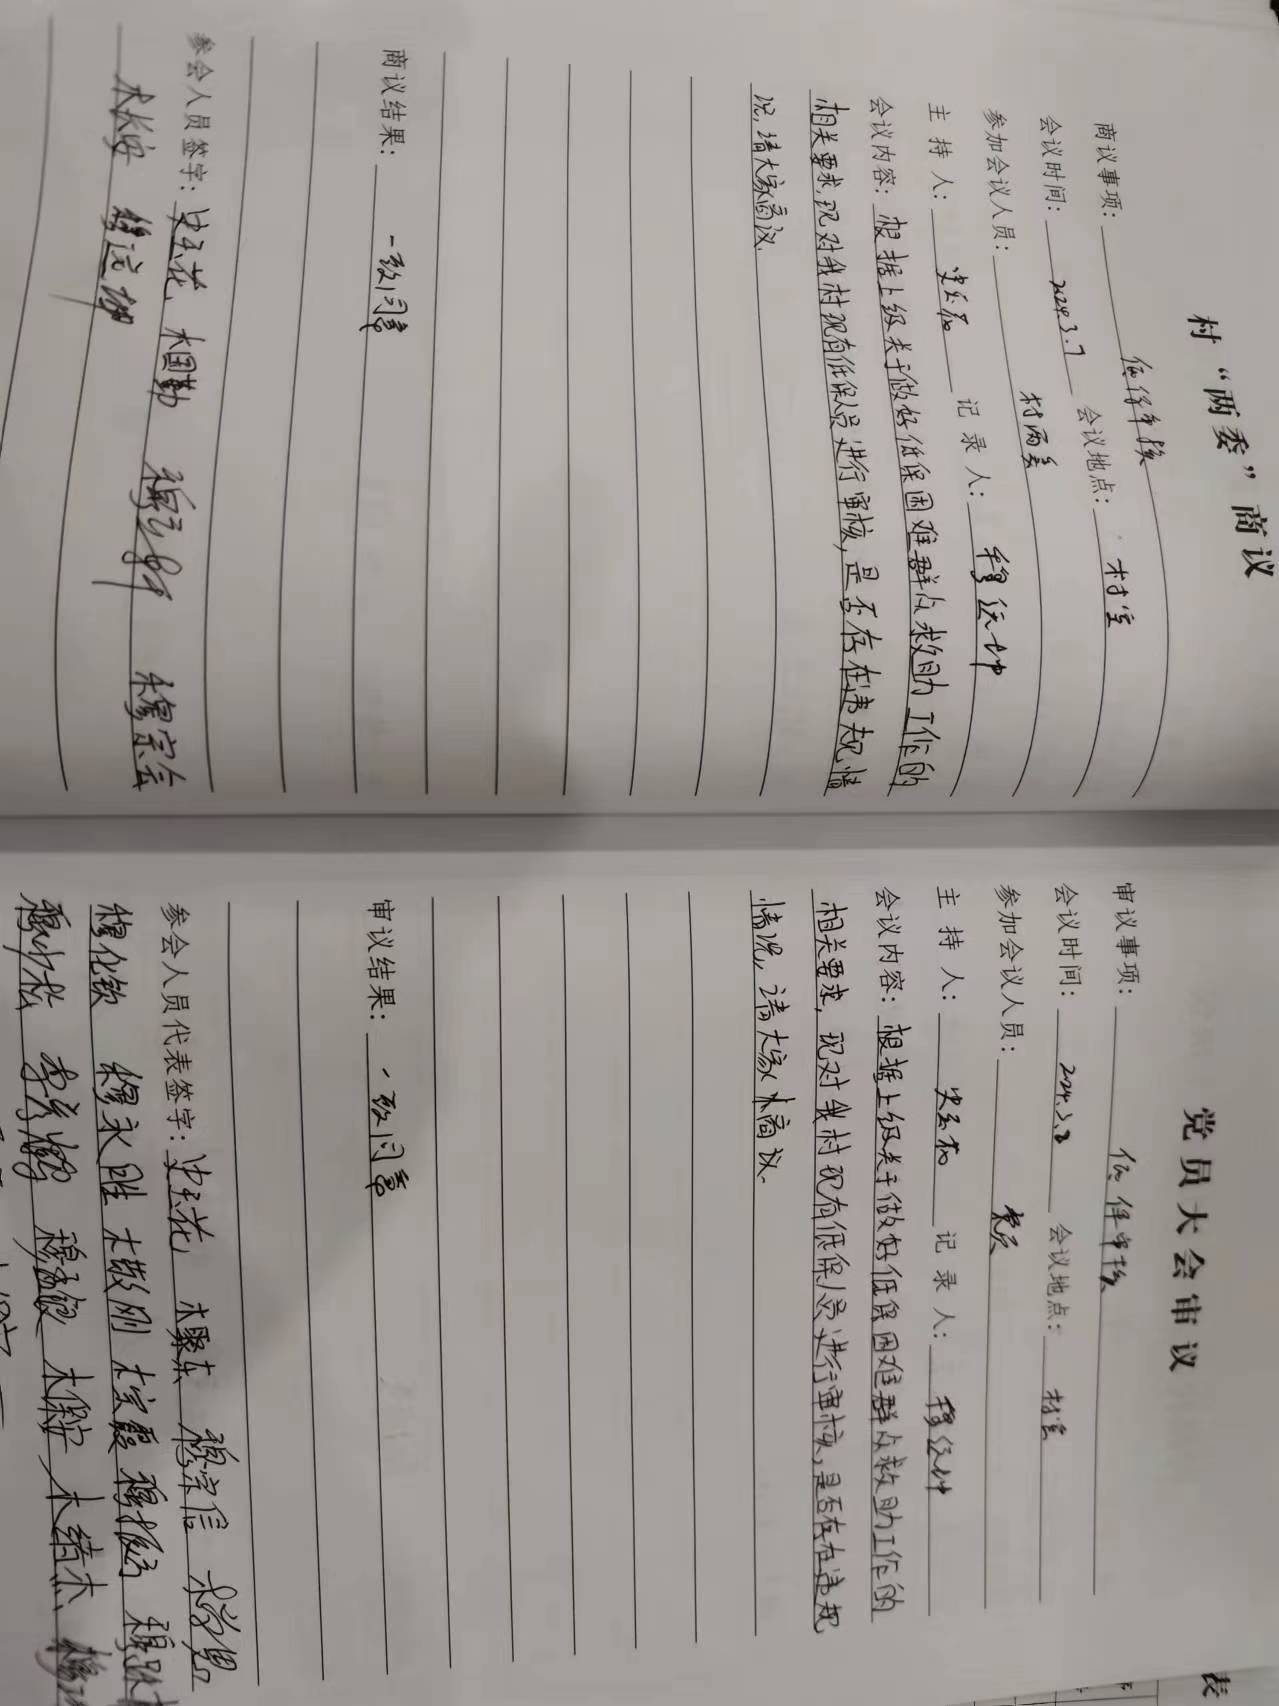 村“两委”商议
商议事项：低保审核
会议时间：2024.3.7 会议地点：村室
参加会议人员：村两委
主持人：史玉花 记录人：
会议内容：根据上级关于做好低保困难群众救助工作的
相关要求,现对我村现有低保人员进行审核,是否存在违规情
况,请大家商议.
商议结果：一致同意
参会人员签字：史玉花 木国勤 穆宗会
党员大会审议
审议事项：低保审核
会议时间：2024.3.8 会议地点：村室
参加会议人员：党员
主持人：史玉花 记录人：
会议内容：根据上级关于做好低保困难群众救助工作的
相关要求,现对我村现有低保人员进行审核,是否存在违规
情况,请大家来商议.
审议结果：一致同意
参会人员代表签字：史玉花 木聚东 穆宗信
穆化钦 穆永胜 木敬刚 木宗霞
表